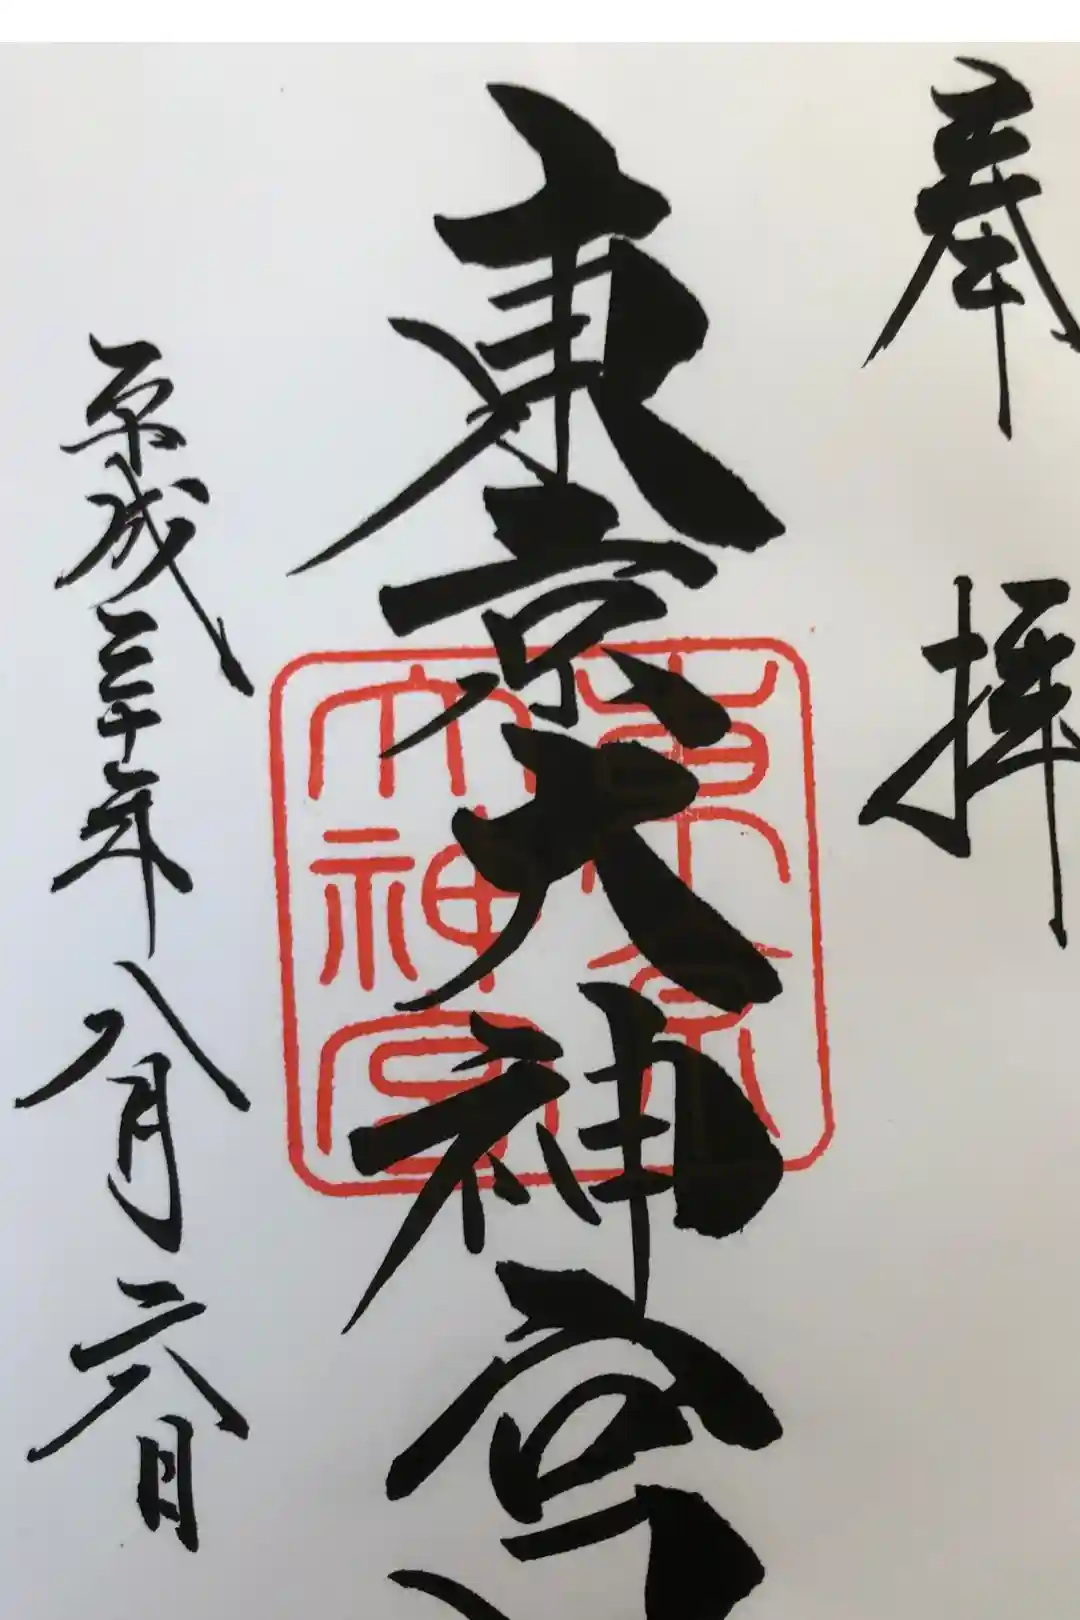 奉拝
東京大神宮
平成三十年八月六日
東京
大神宮